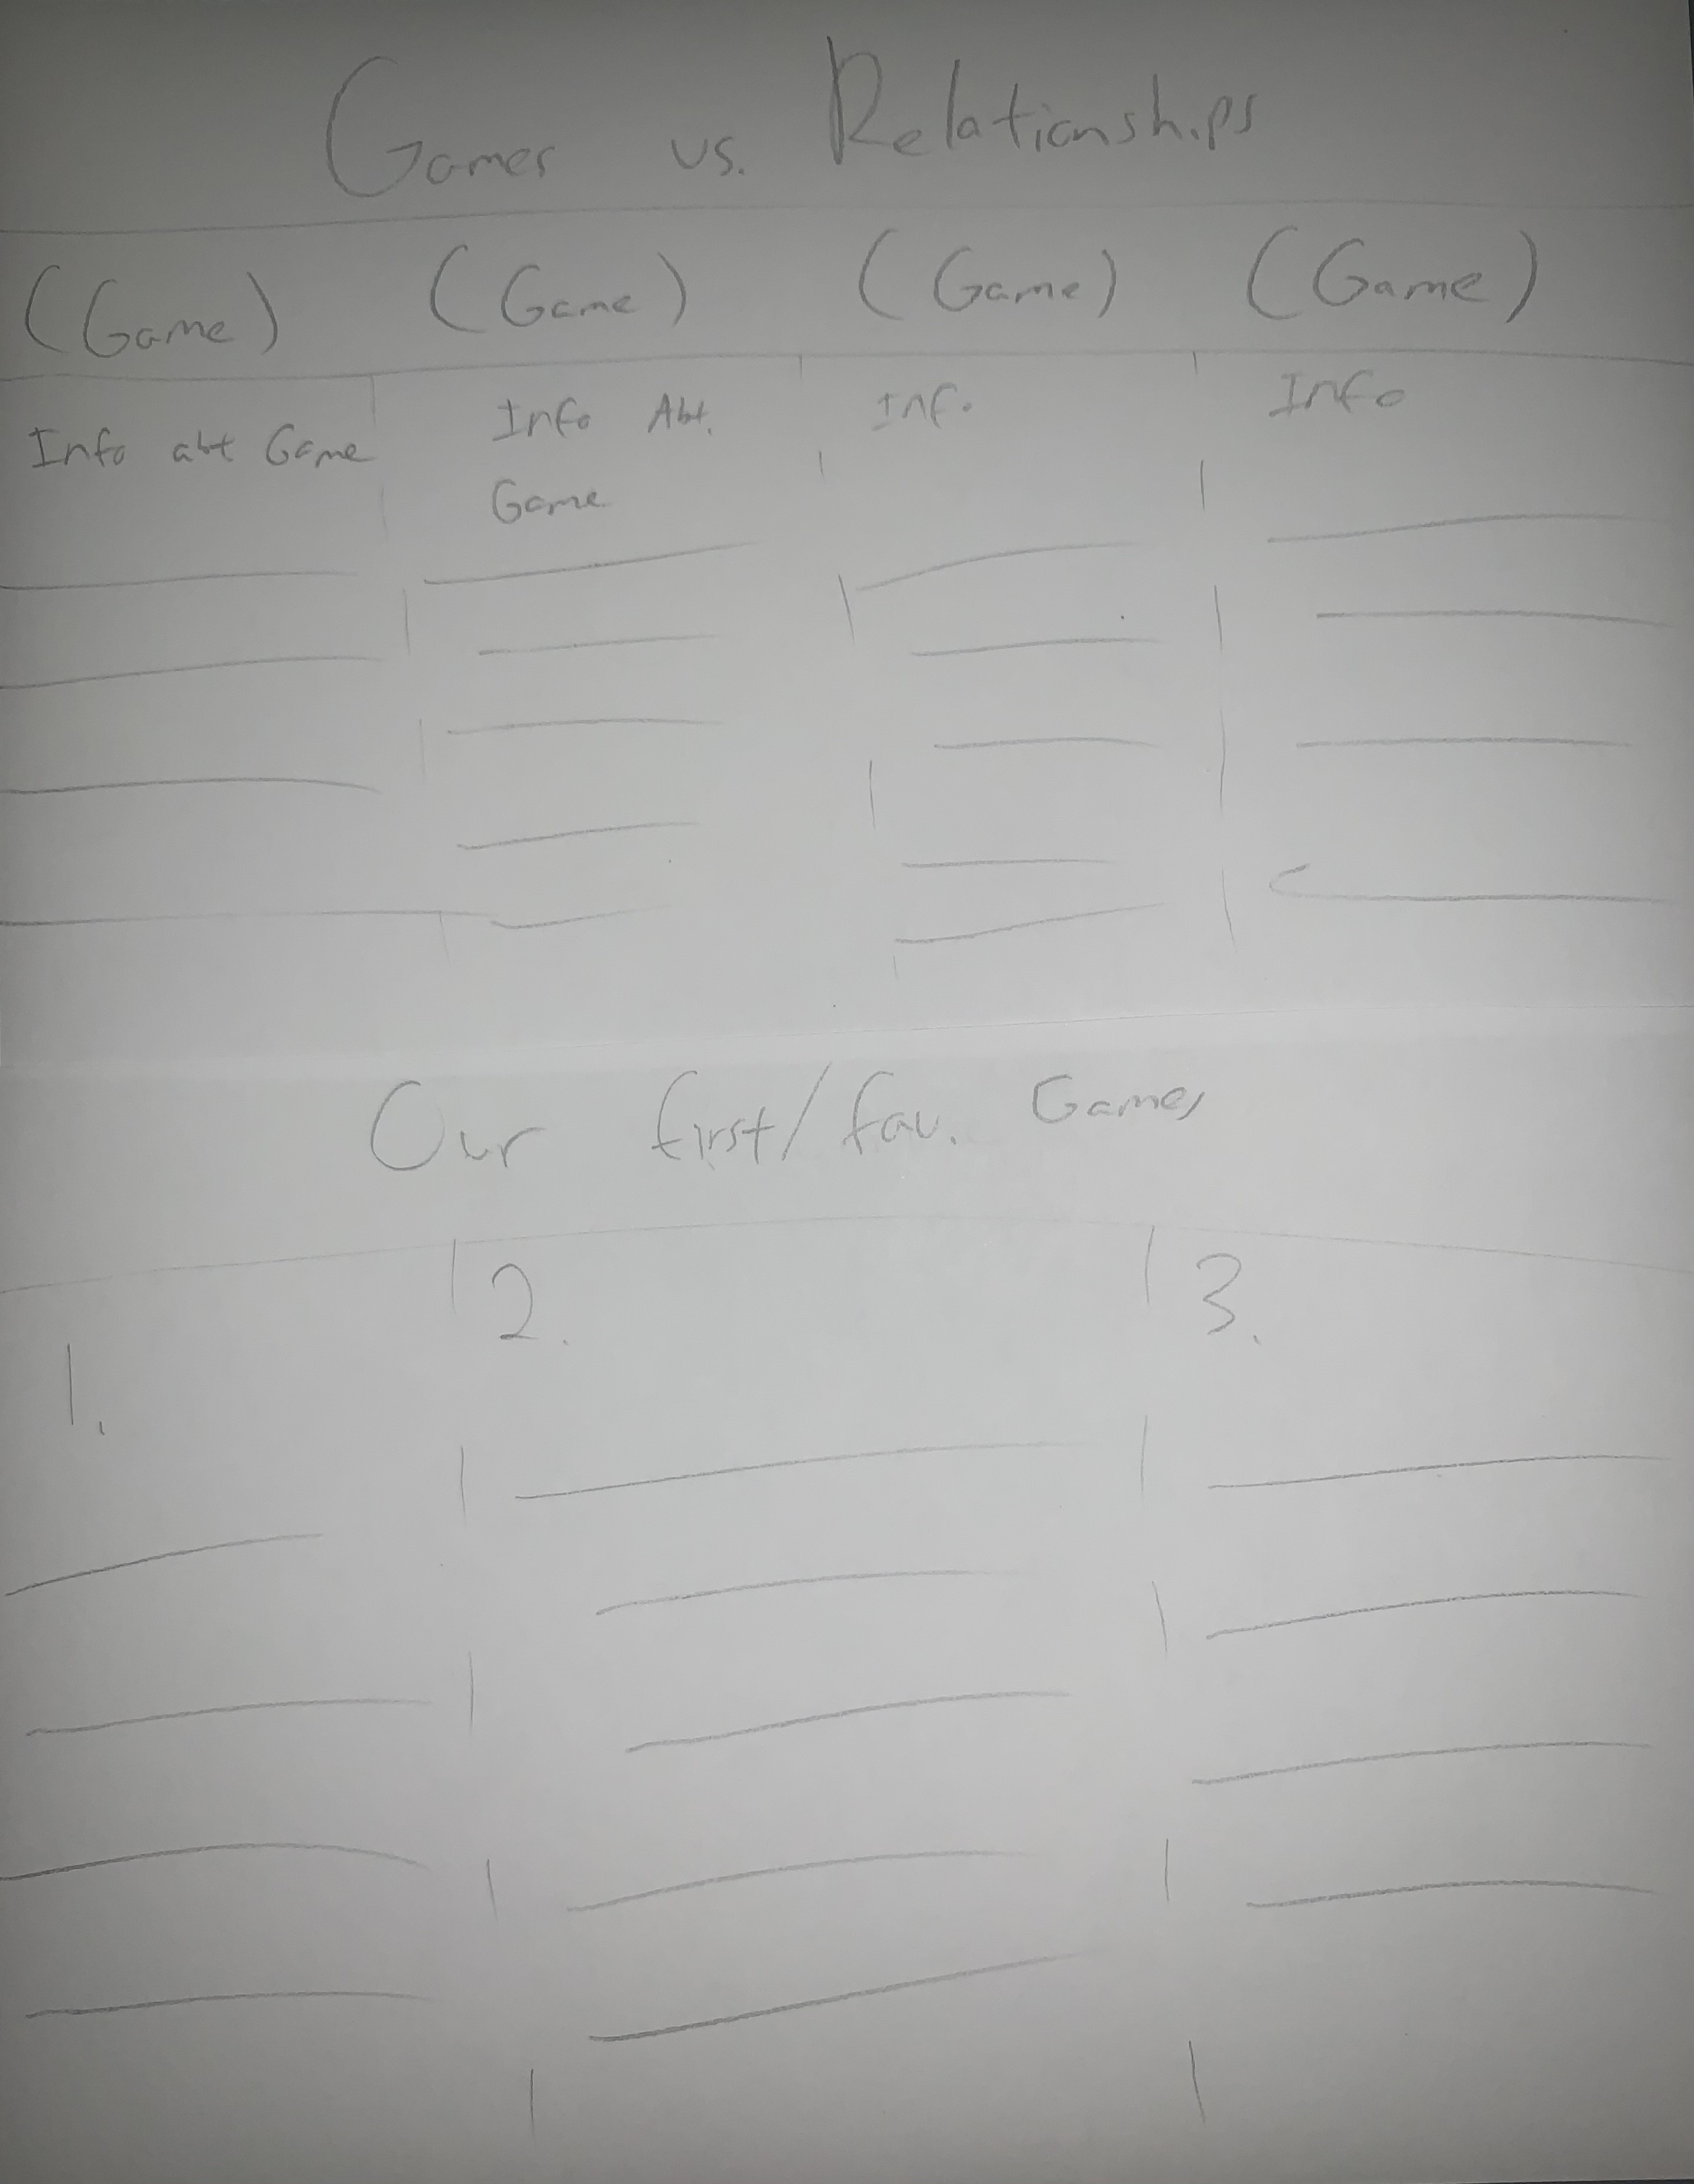 Games vs. Relationships
(Game) (Game) (Game) (Game)
Info abt Game
Info Abt.
Game
Info
Info
Our first/fav. Games
1.
2.
3.